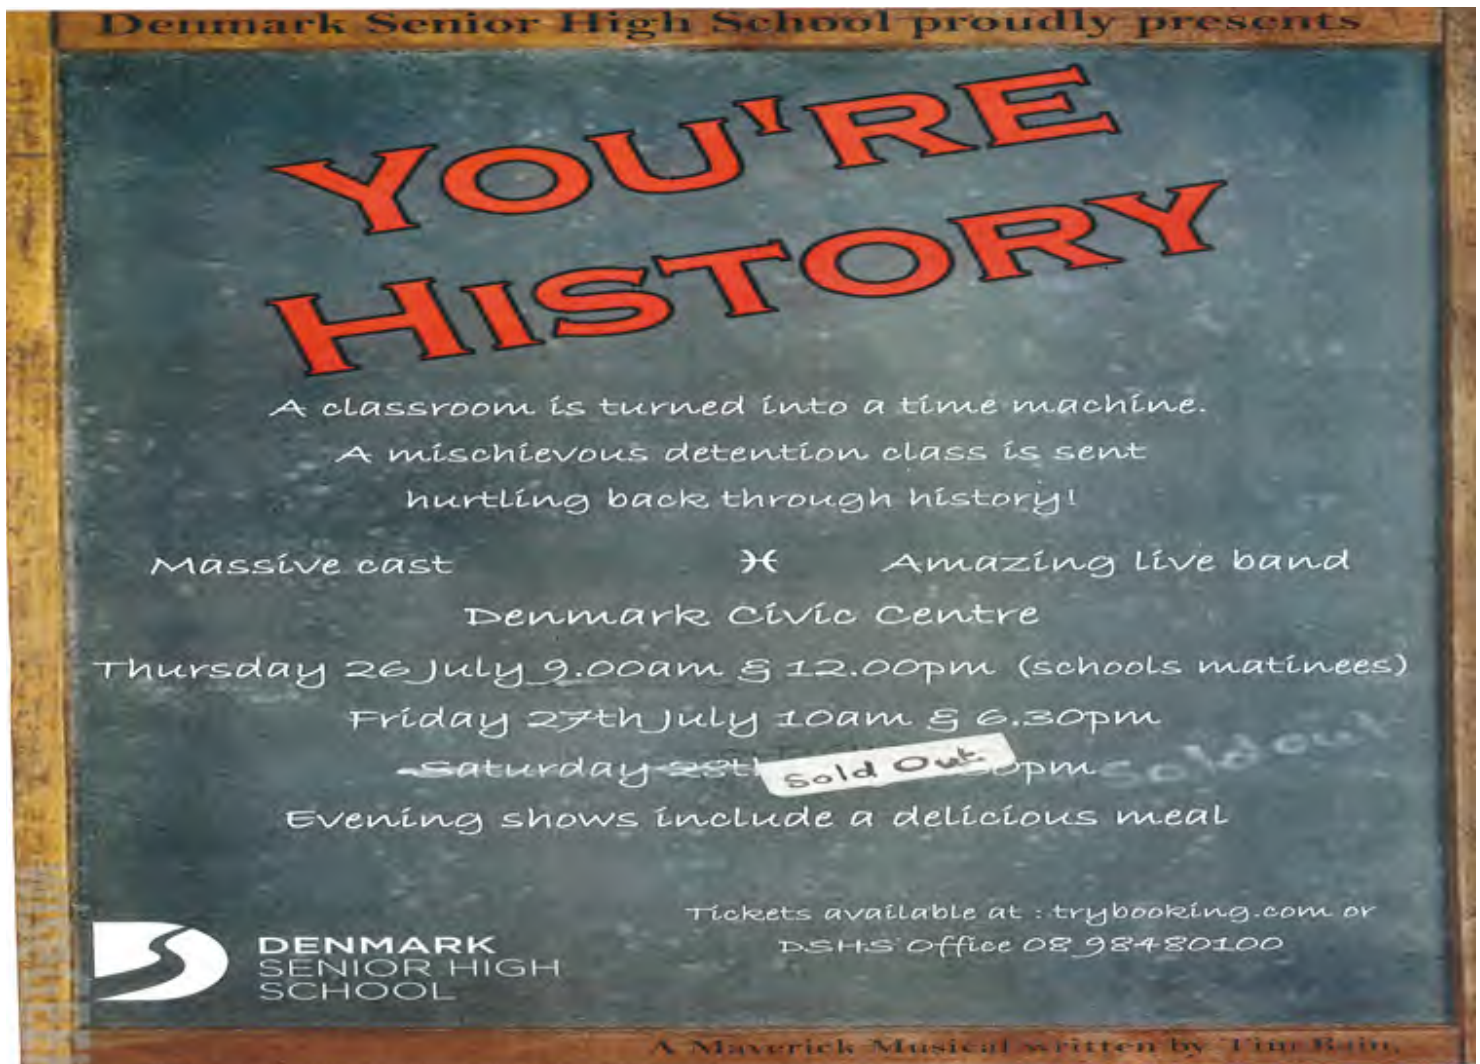 Denmark Senior High School proudly presents
YOU'RE
HISTORY
A classroom is turned into a time machine.
A mischievous detention class is sent
hurtling back through history!
Massive cast Amazing live band
Denmark Civic Centre
Thursday 26 July 9.00am & 12.00pm (schools matinees)
Friday 27th July 10am & 6.30pm
Saturday 28th Sold Out pm Sold out
Evening shows include a delicious meal
Tickets available at : trybooking.com or
DSHS Office 08 98480100
DENMARK
SENIOR HIGH
SCHOOL
A Maverick Musical written by Tim Bain.